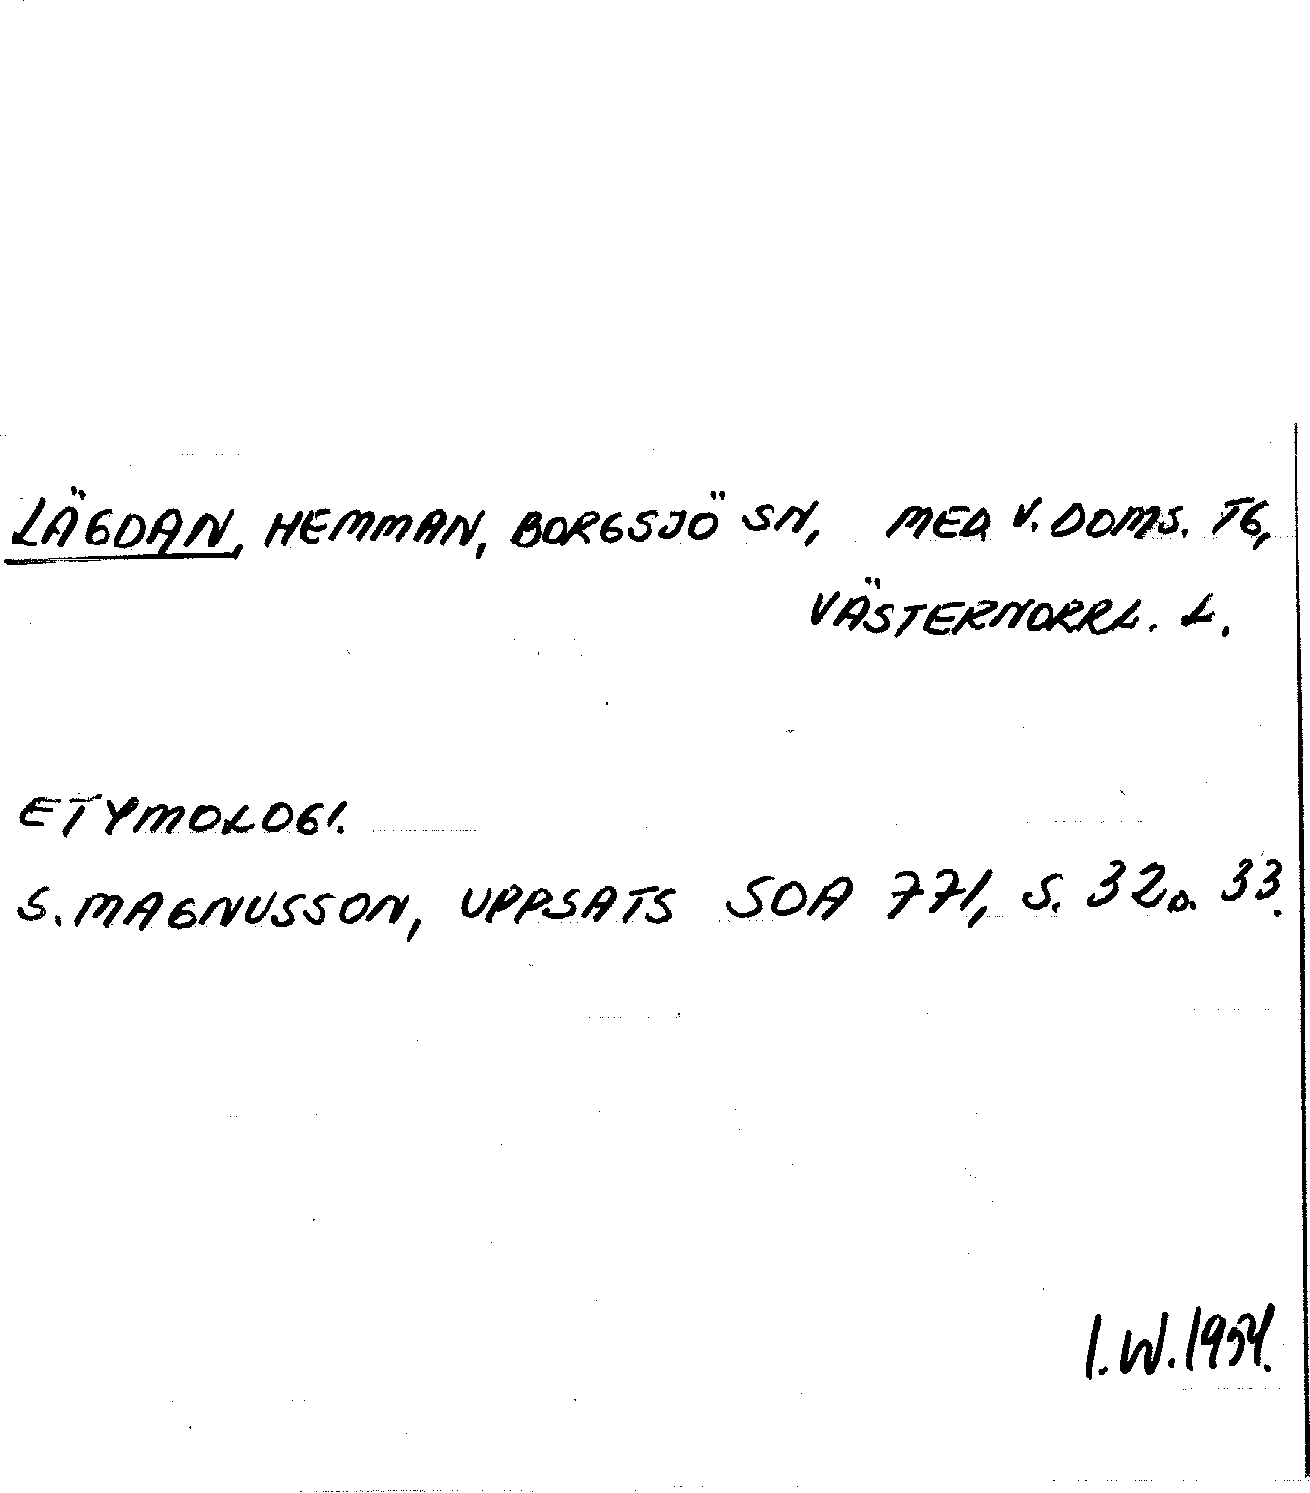 LÄGDAN, HEMMAN, BORGSJÖ SN, MED V. DOMS. TG,
VÄSTERNORRL. L.
ETYMOLOGI.
S. MAGNUSSON, UPPSATS SOA 771, S. 32 o. 33.
I. W. 1954.